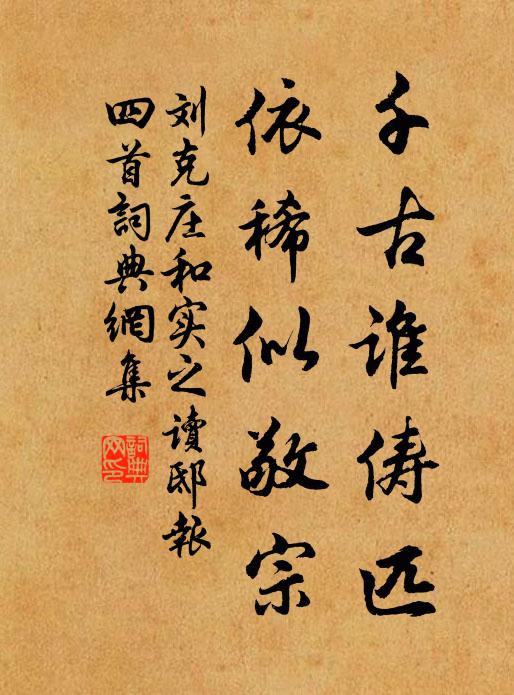 千古谁俦匹
依稀似敬宗
刘克庄和实之读邸報
四首詞典網集
詞典
网印